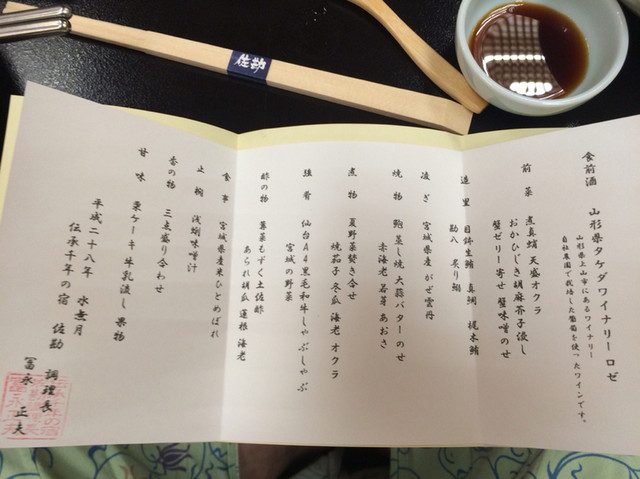 佐勘
食前酒　山形県タケダワイナリー ロゼ
山形県上山市にあるワイナリー
自社農園で栽培した葡萄を使ったワインです。
前菜　煮真蛸 天盛オクラ
おかひじき胡麻芥子浸し
蟹ゼリー寄せ 蟹味噌のせ
造里　目鉢生鮪 真鯛 梶木鮪
勘八 炙り鰯
凌ぎ　宮城県産 がぜ雲丹
焼物　鮑蒸し焼 大蒜バターのせ
赤海老 若芽 あおさ
煮物　夏野菜焚き合せ
焼茄子 冬瓜 海老 オクラ
強肴　仙台A4黒毛和牛しゃぶしゃぶ
宮城の野菜
酢の物　蓴菜もずく土佐酢
あられ胡瓜 蓮根 海老
食事　宮城県産米ひとめぼれ
止椀　浅蜊味噌汁
香の物　三点盛り合わせ
甘味　栗ケーキ 牛乳流し 果物
平成二十八年　水無月
伝承千年の宿　佐勘
調理長
冨永 正夫